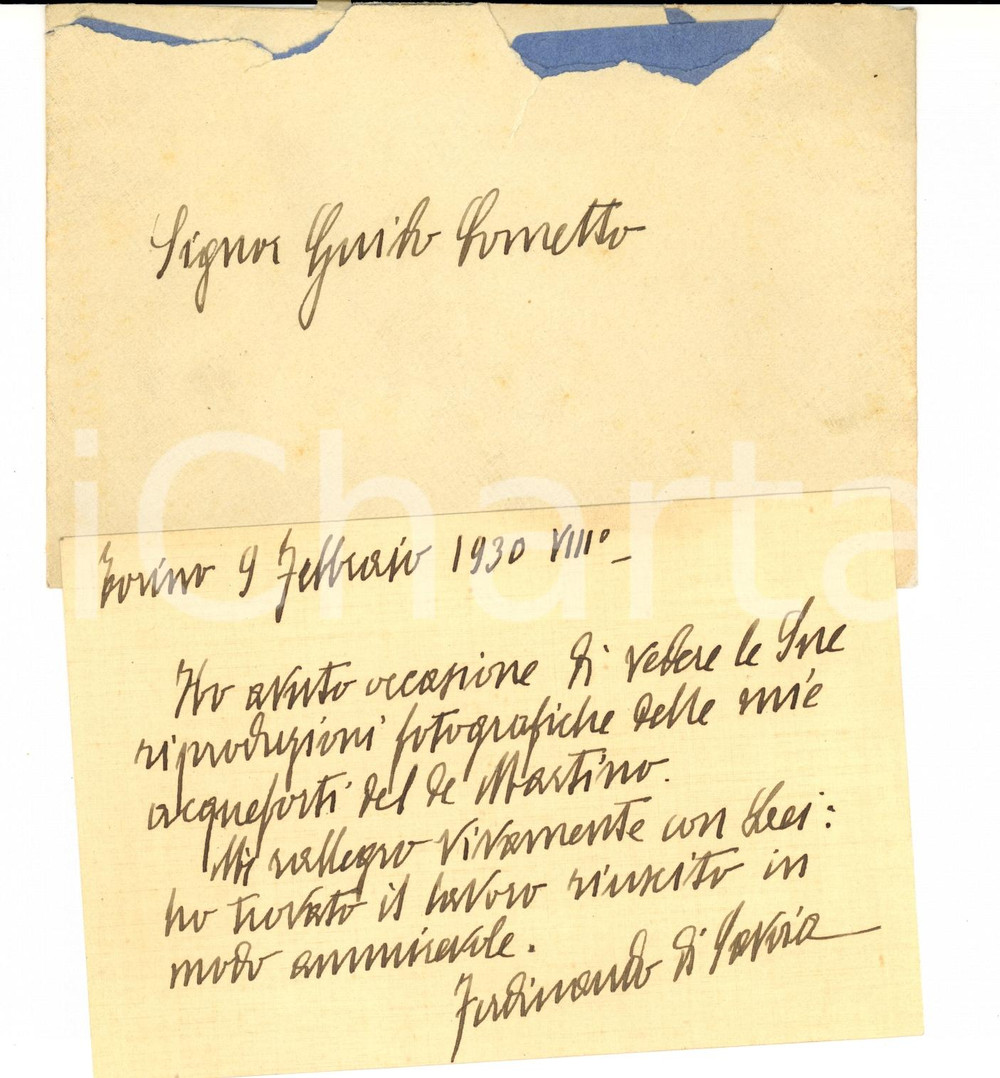 Signor Guido Cometto
iCharta
Torino 9 Febbraio 1930 VIII° –
Ho avuto occasione di vedere le Sue
riproduzioni fotografiche delle mie
acqueforti del de Martino.
Mi rallegro vivamente con Lei:
ho trovato il lavoro riuscito in
modo ammirevole.
Ferdinando di Savoia